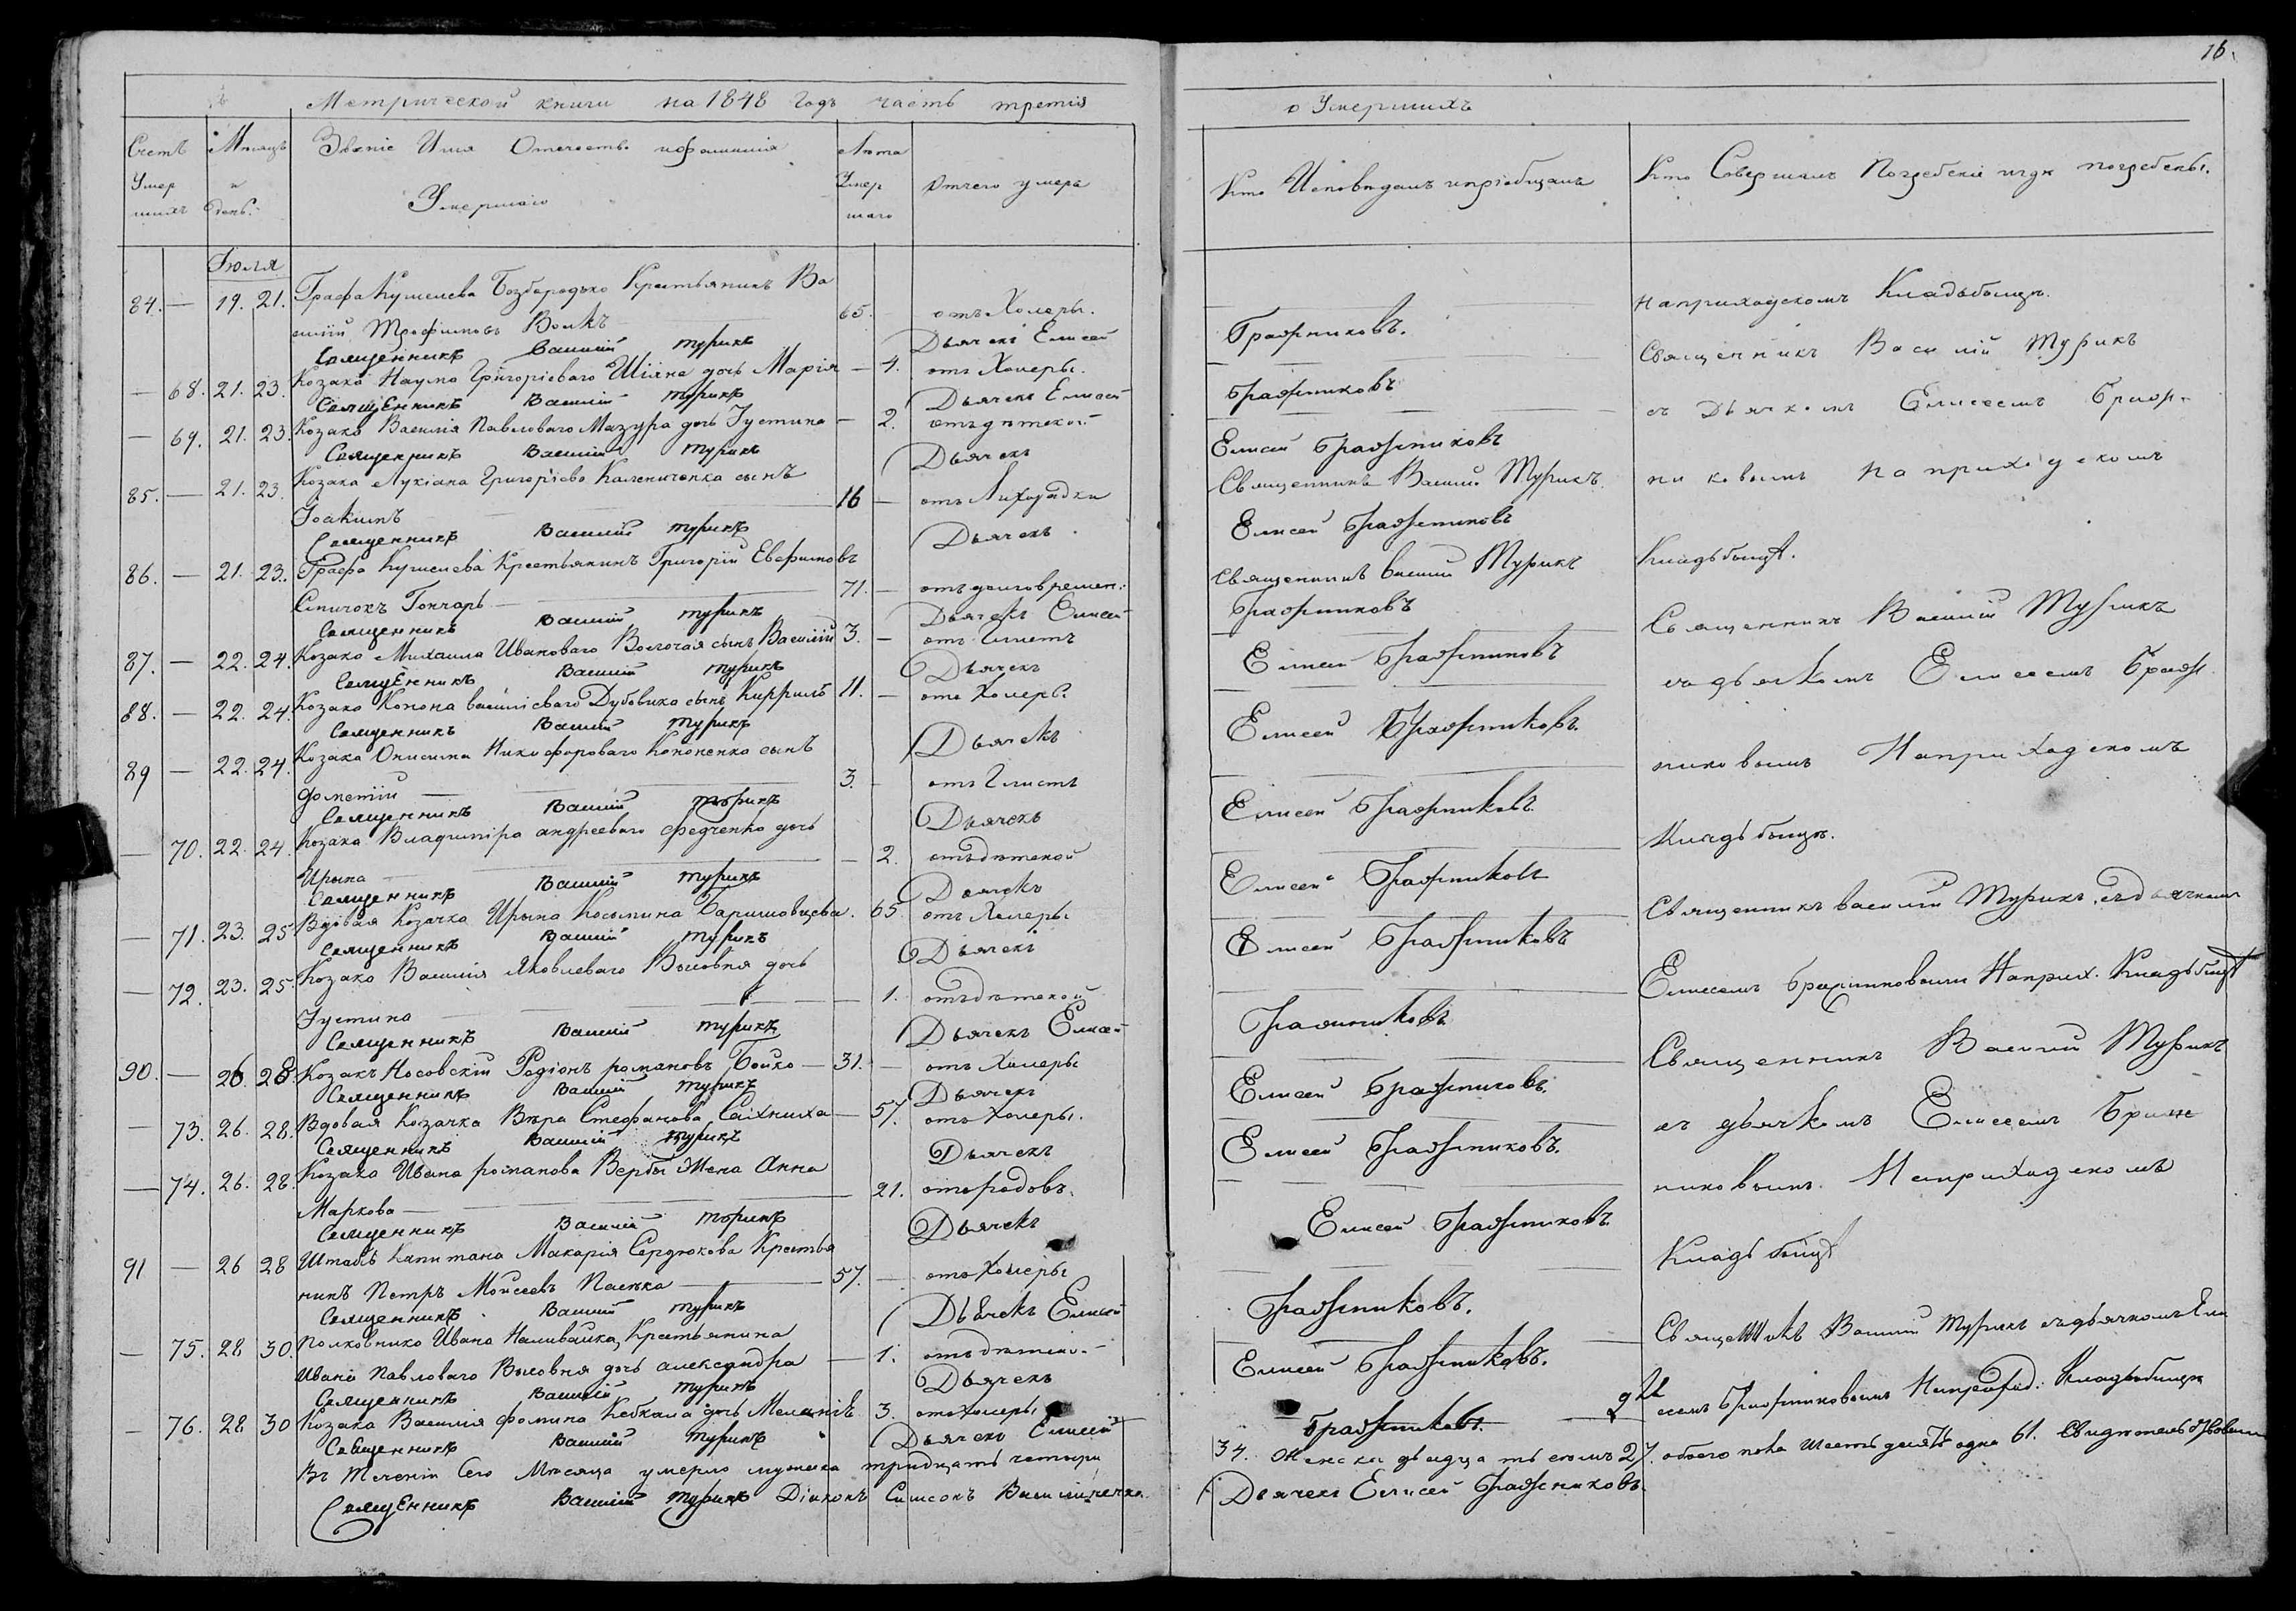 16.
Метрической книги на 1848 Годъ часть третія
о Умершихъ
Счетъ Умер шихъ
Мѣсяцъ и день.
Званіе Имя Отечество и фамилія Умершаго
Лѣта Умер шаго
Отчего умеръ
Кто Исповѣдалъ и пріобщалъ
Кто Совершалъ Погребеніе и гдѣ погребены.
Іюля
84. — 19. 21. Графа Кушелева Безбородько Крестьянинъ Ва
силій Трофимовъ Волкъ 65. отъ Холеры.
Священникъ Василій Турикъ Дьячекъ Елисей Бражниковъ.
— 68. 21. 23. Козака Наума Григоріеваго Шіяна дочь Марія — 4. отъ Холеры.
Священникъ Василій Турикъ Дьячекъ Елисей Бражниковъ
— 69. 21. 23. Козака Василія Павловаго Мазура дочь Іустина — 2. отъ дѣтской
Священникъ Василій Турикъ Дьячекъ Елисей Бражниковъ
85. — 21. 23. Козака Лукіана Григоріева Калениченка сынъ Священникъ Василій Турикъ.
Іоакимъ 16 — отъ Лихорадки
Священникъ Василій Турикъ Дьячекъ Елисей Бражниковъ
86. — 21. 23. Графа Кушелева Крестьянинъ Григорій Евфимовъ Священникъ Василій Турикъ
Гончаръ 71. — отъ долговремен:
Священникъ Василій Турикъ Дьячекъ Елисей Бражниковъ
87. — 22. 24. Козака Михаила Ивановаго сынъ Василій 3. — отъ Глистъ
Священникъ Василій Турикъ Дьячекъ Елисей Бражниковъ
88. — 22. 24. Козака Конона Василіеваго Дубовика сынъ Кириллъ 11. — отъ Холеры
Священникъ Василій Турикъ Дьячекъ Елисей Бражниковъ.
89 — 22. 24. Козака Онисима Никифороваго Кононенка сынъ
Фометій — 3. — отъ Глистъ
Священникъ Василій Турикъ Дьячекъ Елисей Бражниковъ
— 70. 22. 24. Козака Владиміра Андреева Федченка дочь
Ирына — 2. отъ дѣтской
Священникъ Василій Турикъ Дьячекъ Елисей Бражниковъ
— 71. 23. 25 Вдовая Козачка Ирына Косьмина 65. отъ Холеры
Священникъ Василій Турикъ Дьячекъ Елисей Бражниковъ
— 72. 23. 25. Козака Василія Яковлеваго Высовня дочь
Іустина — 1. отъ дѣтской
Священникъ Василій Турикъ Дьячекъ Елисей Бражниковъ
90. — 26. 28. Козакъ Носовскій Родіонъ Романовъ Бойко — 31. — отъ Холеры
Священникъ Василій Турикъ Дьячекъ Елисей Бражниковъ.
— 73. 26. 28. Вдовая Козачка Вѣра Стефанова — 57. отъ Холеры.
Священникъ Василій Турикъ Дьячекъ Елисей Бражниковъ.
— 74. 26. 28. Козака Ивана Романова Вербы Жена Анна
Маркова — 21. отъ родовъ.
Священникъ Василій Турикъ Дьячекъ Елисей Бражниковъ
91 — 26 28 Штабсъ Капитана Макарія Сердюкова Крестья
нинъ Петръ Моисеевъ Пасѣка 57. — отъ Холеры
Священникъ Василій Турикъ Дьячекъ Елисей Бражниковъ.
— 75. 28 30. Полковника Ивана Наливайка Крестьянина
Ивана Павловаго Высовня дочь Александра — 1. отъ дѣтской
Священникъ Василій Турикъ Дьячекъ Елисей Бражниковъ.
— 76. 28 30 Козака Василія Фомина Кебкала дочь Меланія 3. отъ холеры
Священникъ Василій Турикъ Дьячекъ Елисей Бражниковъ.
на приходскомъ Кладьбищѣ.
Священникъ Василій Турикъ
съ Дьячкомъ Елисеемъ Бражни
никовымъ на приходскомъ
Кладьбищѣ.
Священникъ Василій Турикъ
съ дьячкомъ Елисеемъ Бражн
никовымъ На приходскомъ
Кладьбищѣ.
Священникъ Василій Турикъ съ дьячкомъ
Елисеемъ Бражниковымъ На прих. Кладьбищѣ
Священникъ Василій Турикъ
съ дьячкомъ Елисеемъ Браж
никовымъ На приходскомъ
Кладьбищѣ
Священникъ Василій Турикъ съ дьячкомъ Ели
сеемъ Бражниковымъ На приход: Кладьбищѣ
Въ теченіи Сего Мѣсяца умерло мужеска тридцать четыри 34. Женска двадцать семъ 27. обоего пола шестьдесятъ одна 61.
Священникъ Василій Турикъ Діяконъ Симеонъ Дьячекъ Елисей Бражниковъ.